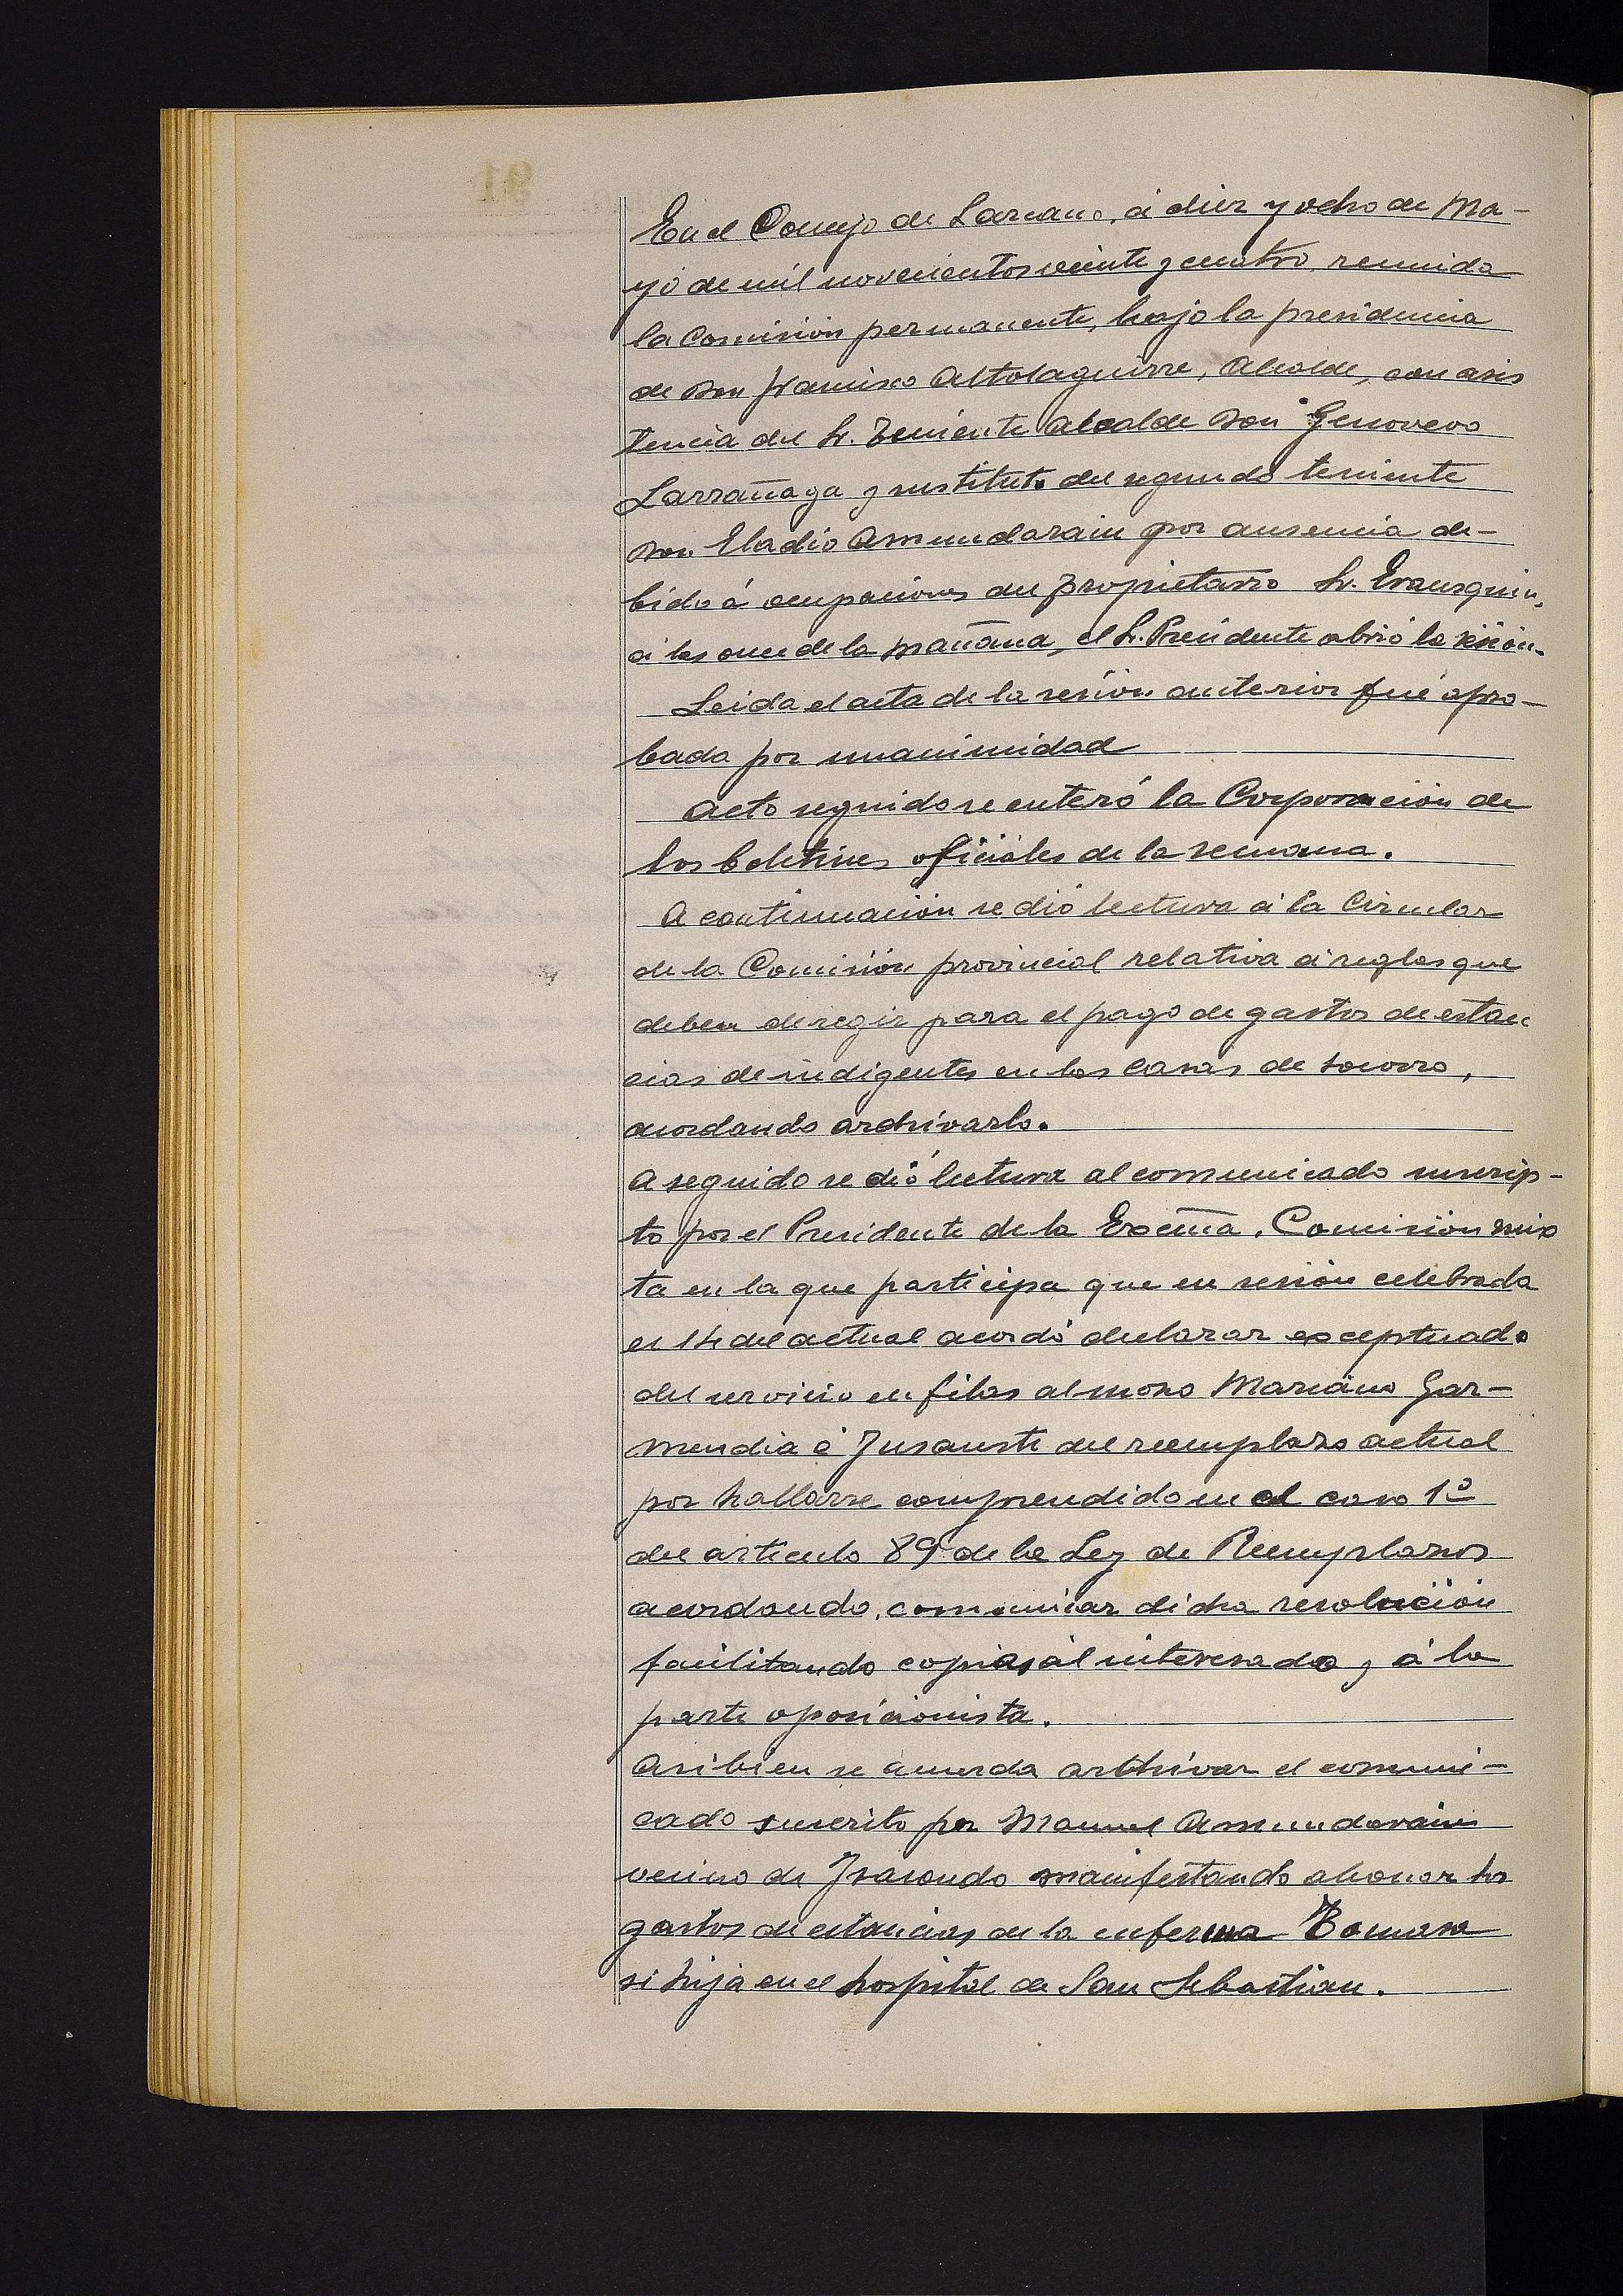 En el Concejo de Lazcano, á diez y ocho de Ma-
yo de mil novecientos veinte y cuatro, reunida
la Comisión permanente, bajo la presidencia
de Don Francisco Altolaguirre, Alcalde, con asis
tencia del Sr. Teniente Alcalde Don Genovevo
Larrañaga y sustituto del segundo teniente
Don Eladio Amundarain por ausencia de-
bido á ocupaciones del propietario Sr. Erausquin,
á las once de la mañana, el Sr. Presidente abrió la sesión.
Leida el acta de la sesión anterior fué apro-
bada por unanimidad
Acto seguido se enteró la Corporación de
los boletines oficiales de la semana.
A continuación se dió lectura á la Circular
de la Comisión provincial relativa á reglas que
deben de regir para el pago de gastos de estan
cias de indigentes en las casas de socorro,
acordando archivarlo.
A seguido se dió lectura al comunicado suscrip-
to por el Presidente de la Excma. Comisión mix
ta en la que participa que en sesión celebrada
el 14 del actual acordó declarar exceptuado
del servicio en filas al mozo Mariano Gar-
mendia é Insausti del reemplazo actual
por hallarse comprendido en el caso 1º
del articulo 89 de la Ley de Reemplazos
acordando, comunicar dicha resolución
facilitando copias, al interesado y á la
parte oposicionista.
Asi bien se acuerda archivar el comuni-
cado suscrito por Manuel Amundarain
vecino de Isasondo manifestando abonar los
gastos de estancias de la enferma Tomasa
si hija en el hospital de San Sebastian.
91